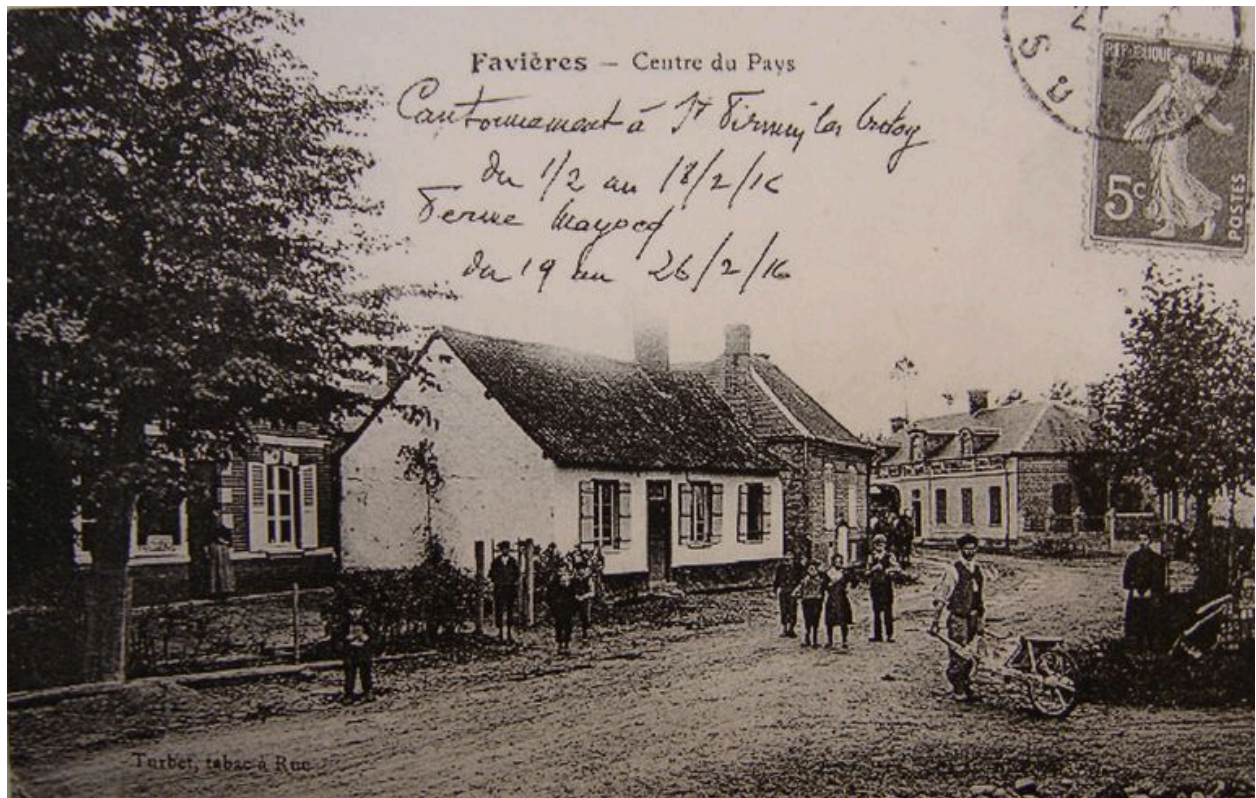 Favières – Centre du Pays
Cantonnement à St Firmin les Crotoy
du 1/2 au 18/2/16
Ferme Mayocq
du 19 au 26/2/16
RÉPUBLIQUE FRANÇAISE
5c
POSTES
Turbet, tabac à Rue